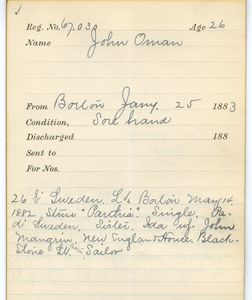 Reg. No. 67,030 Age 26
Name John Oman
From Boston Jany. 25 1883
Condition, Sore hand
Discharged 188
Sent to
For Nos.
26 Sweden. Ld. Boston May 14,
1882 Stmr "Parthia". Single. Pa-
d' Sweden. Sister, Ida wf. John
Mangrin, New England House, Black-
stone St. Sailor